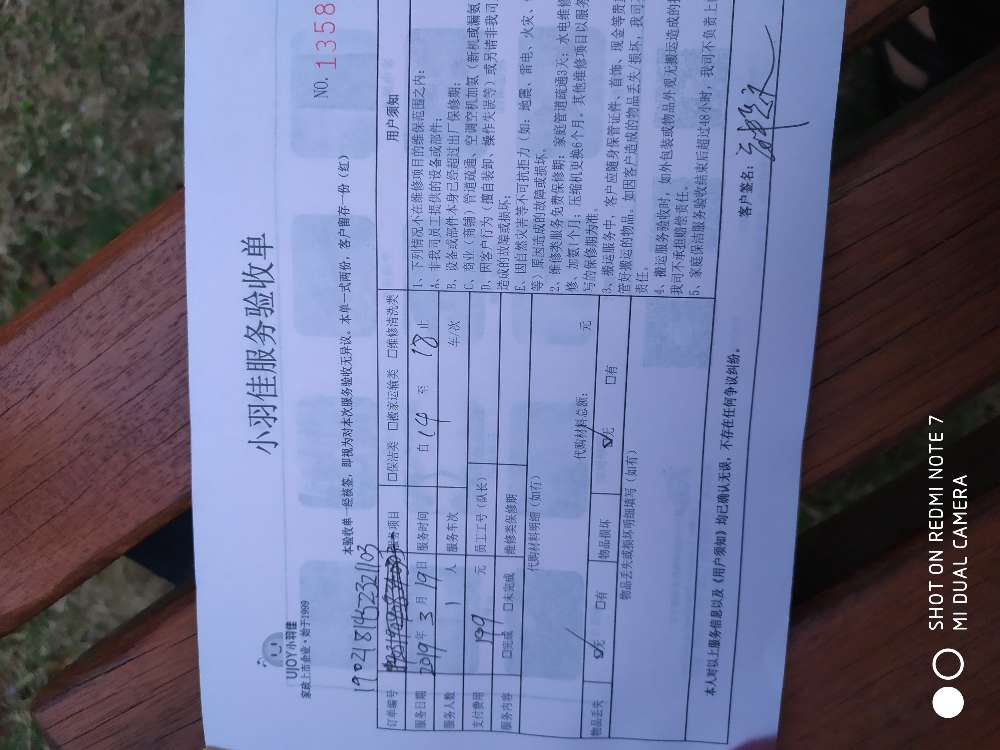 UJOY小羽佳
家政上市企业·始于1999
小羽佳服务验收单
NO. 1358
本验收单一经核签，即视为对本次服务验收无异议。本单一式两份，客户留存一份（红）
订单编号
服务项目 □保洁类 □搬家运输类 □维修清洗类
服务日期 2019年 3月 19日 服务时间 自 14 至 18 止
服务人数 1 人 服务车次 车/次
支付费用 199 元 员工工号（队长）
服务内容 □完成 □未完成 维修类保修期
代购材料明细（如有）
代购材料总额： 元
物品丢失 ☑无 □有 物品损坏 ☑无 □有
物品丢失或损坏明细填写（如有）
用户须知
1、下列情况不在维修项目的维保范围之内：
A、非我司员工提供的设备或部件；
B、设备或部件本身已经超过出厂保修期；
C、商业（商铺）管道疏通、空调空机加氨（新机或漏氨
D、因客户行为（擅自装卸、操作失误等）或另请非我司
造成的故障或损坏；
E、因自然灾害等不可抗拒力（如：地震、雷电、火灾、
等）原因造成的故障或损坏。
2、维修类服务免费保修期：家庭管道疏通3天；水电维修
修、加氨1个月；压缩机更换6个月。其他维修项目以服务
写的保修期为准。
3、搬运服务中，客户应随身保管证件、首饰、现金等贵
管好搬运的物品。如因客户造成的物品丢失/损坏，我司
责任。
4、搬运服务验收时，如外包装或物品外观无搬运造成的
我司不承担赔偿责任。
5、家庭保洁服务验收结束后超过48小时，我司不负责上
本人对以上服务信息以及《用户须知》均已确认无误，不存在任何争议纠纷。
客户签名：
SHOT ON REDMI NOTE 7
MI DUAL CAMERA